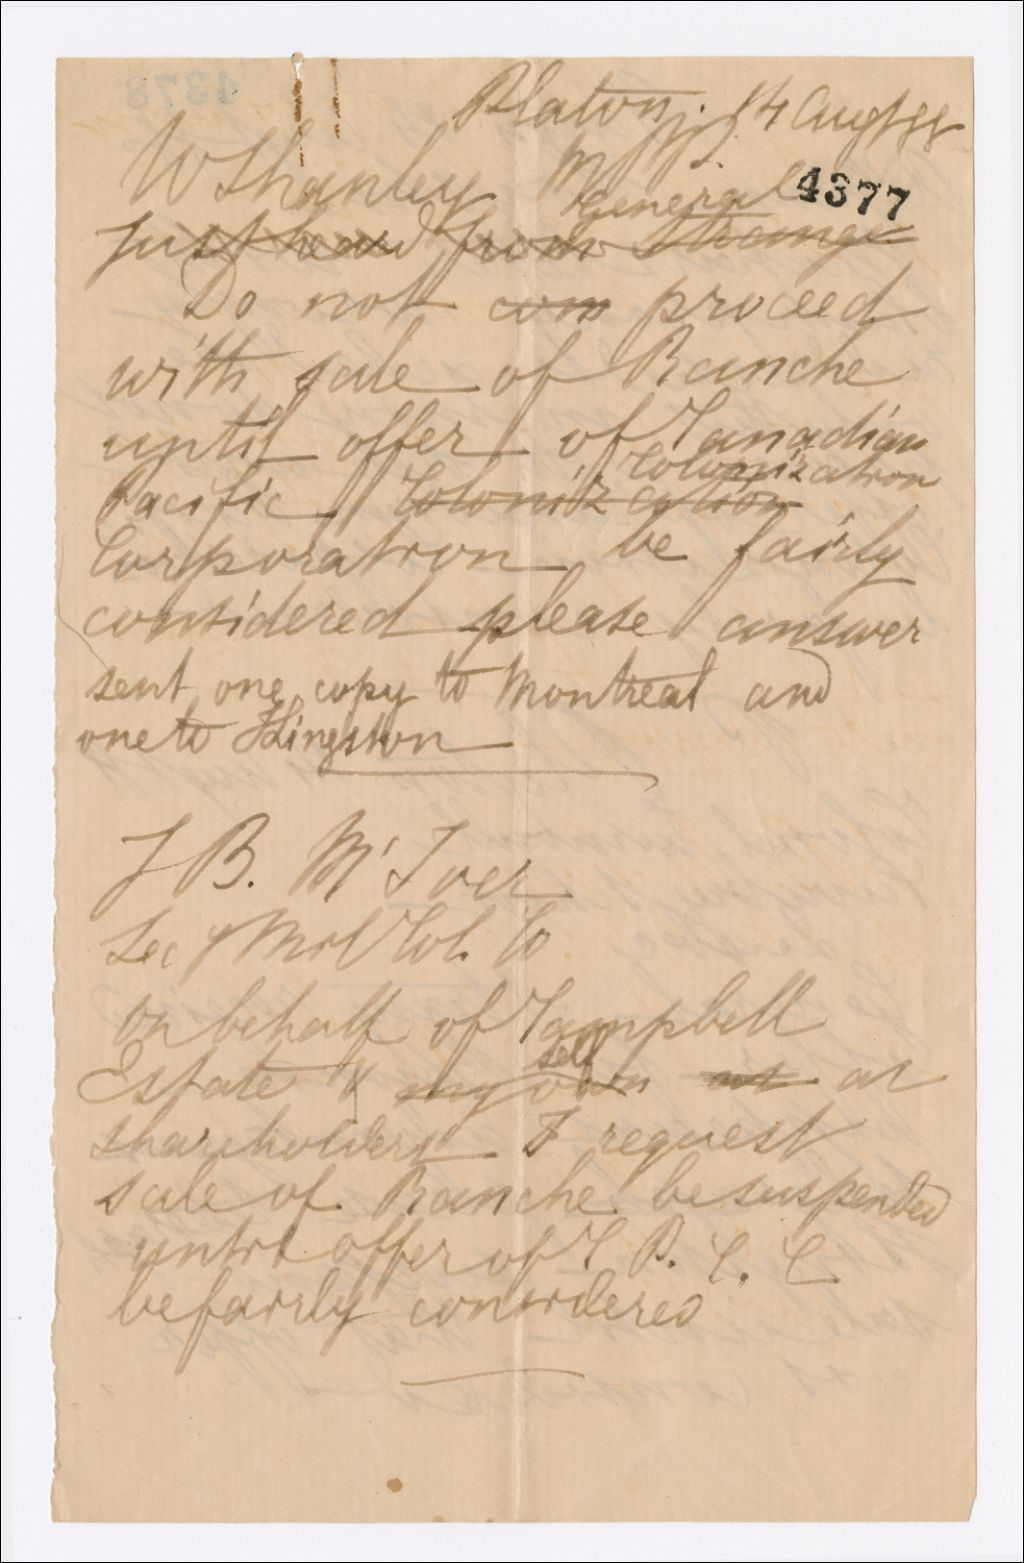 Platon. 14 Augt 88
W Shanley M P
General 4377
Just heard from Strange
Do not com proceed
with sale of Ranche
until offer of Canadian
Colonization
Pacific Colonization
Corporation be fairly
considered please answer
sent one copy to Montreal and
one to Kingston
J B. McIver
Sec y M Col. Co
On behalf of Campbell
self
Estate & my own as as
shareholders I request
sale of Ranche be suspended
until offer of C P. C. C
be fairly considered